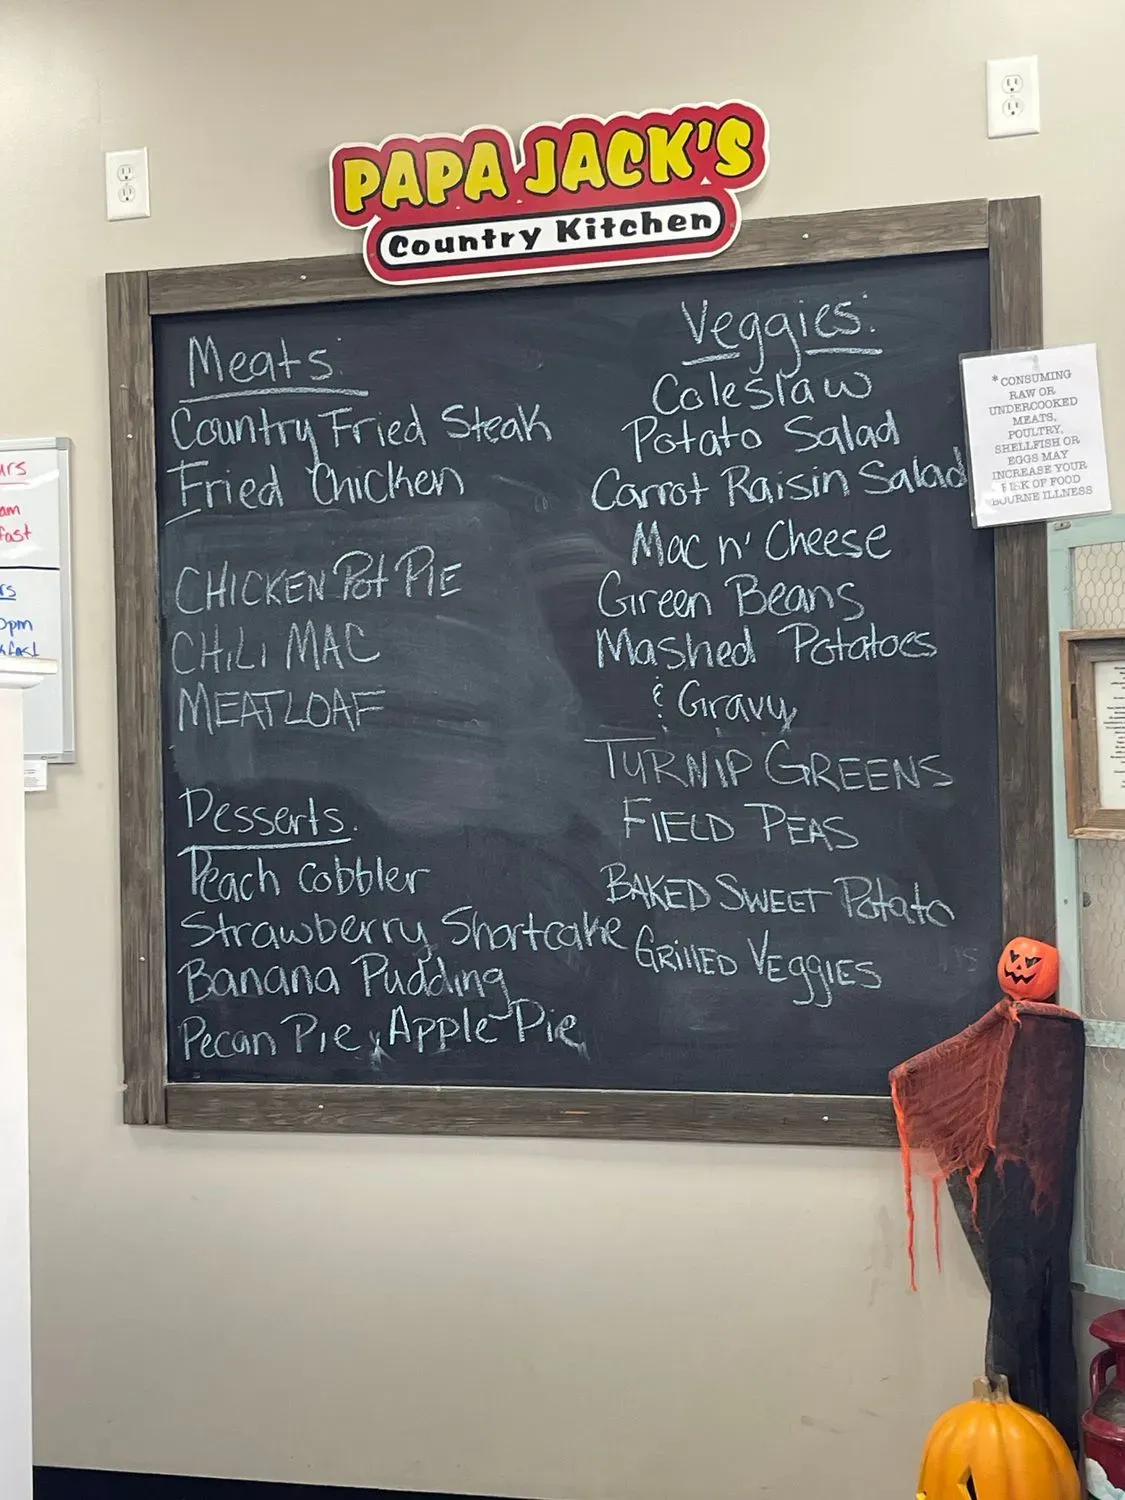 PAPA JACK'S
Country Kitchen
Meats:
Country Fried Steak
Fried Chicken
CHICKEN Pot PIE
CHILI MAC
MEATLOAF
Desserts:
Peach Cobbler
Strawberry Shortcake
Banana Pudding
Pecan Pie, Apple Pie
Veggies:
Coleslaw
Potato Salad
Carrot Raisin Salad
Mac n' Cheese
Green Beans
Mashed Potatoes
& Gravy
TURNIP GREENS
FIELD PEAS
BAKED SWEET Potato
GRILLED VEGGIES
* CONSUMING
RAW OR
UNDERCOOKED
MEATS,
POULTRY,
SHELLFISH OR
EGGS MAY
INCREASE YOUR
RISK OF FOOD
BOURNE ILLNESS
am